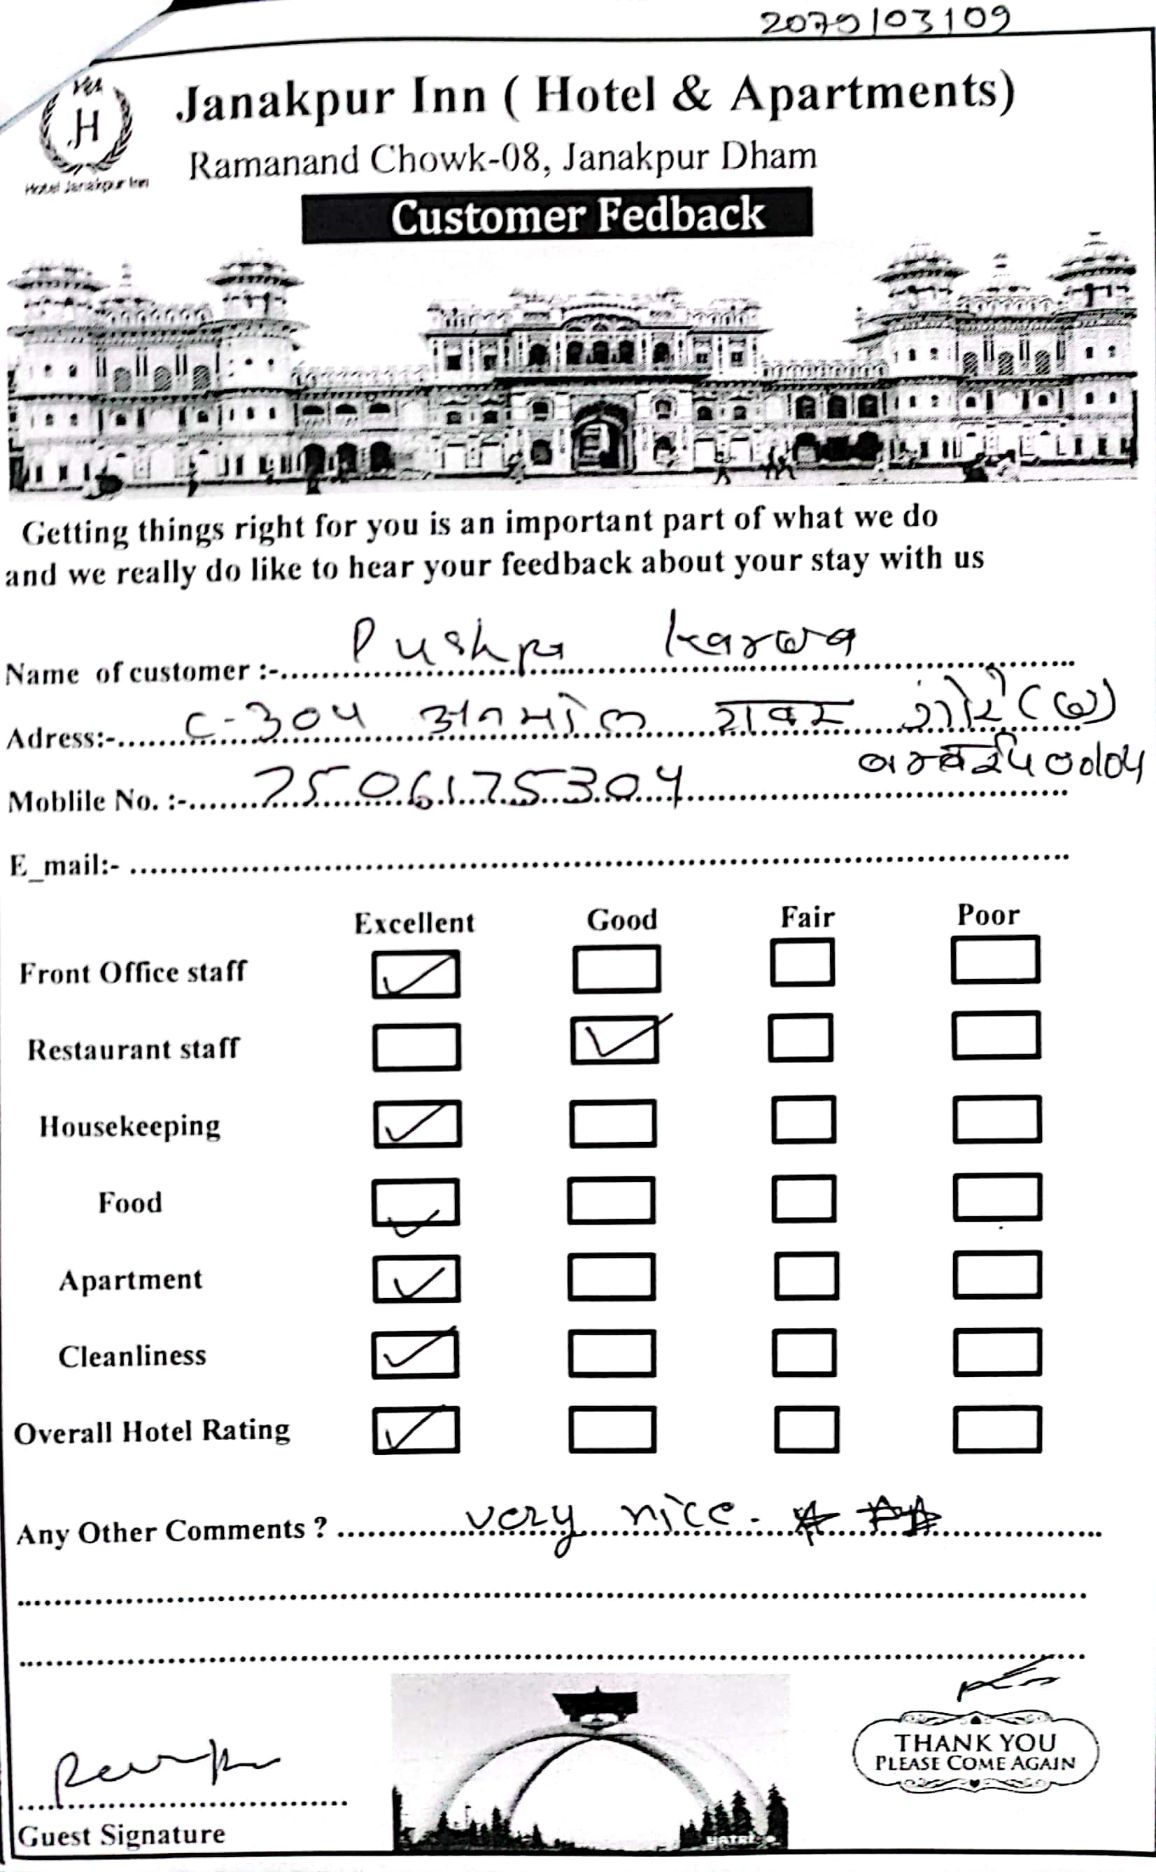 2079/03/09
JH
Hotel Janakpur Inn
Janakpur Inn ( Hotel & Apartments)
Ramanand Chowk-08, Janakpur Dham
Customer Fedback
Getting things right for you is an important part of what we do
and we really do like to hear your feedback about your stay with us
Name of customer :- Pushpa Karwa
Adress:- C-304 अनमोल टावर
Moblile No. :- 7506175304
E_mail:-
Excellent Good Fair Poor
Front Office staff
Restaurant staff
Housekeeping
Food
Apartment
Cleanliness
Overall Hotel Rating
Any Other Comments ? very nice.
THANK YOU
PLEASE COME AGAIN
Guest Signature